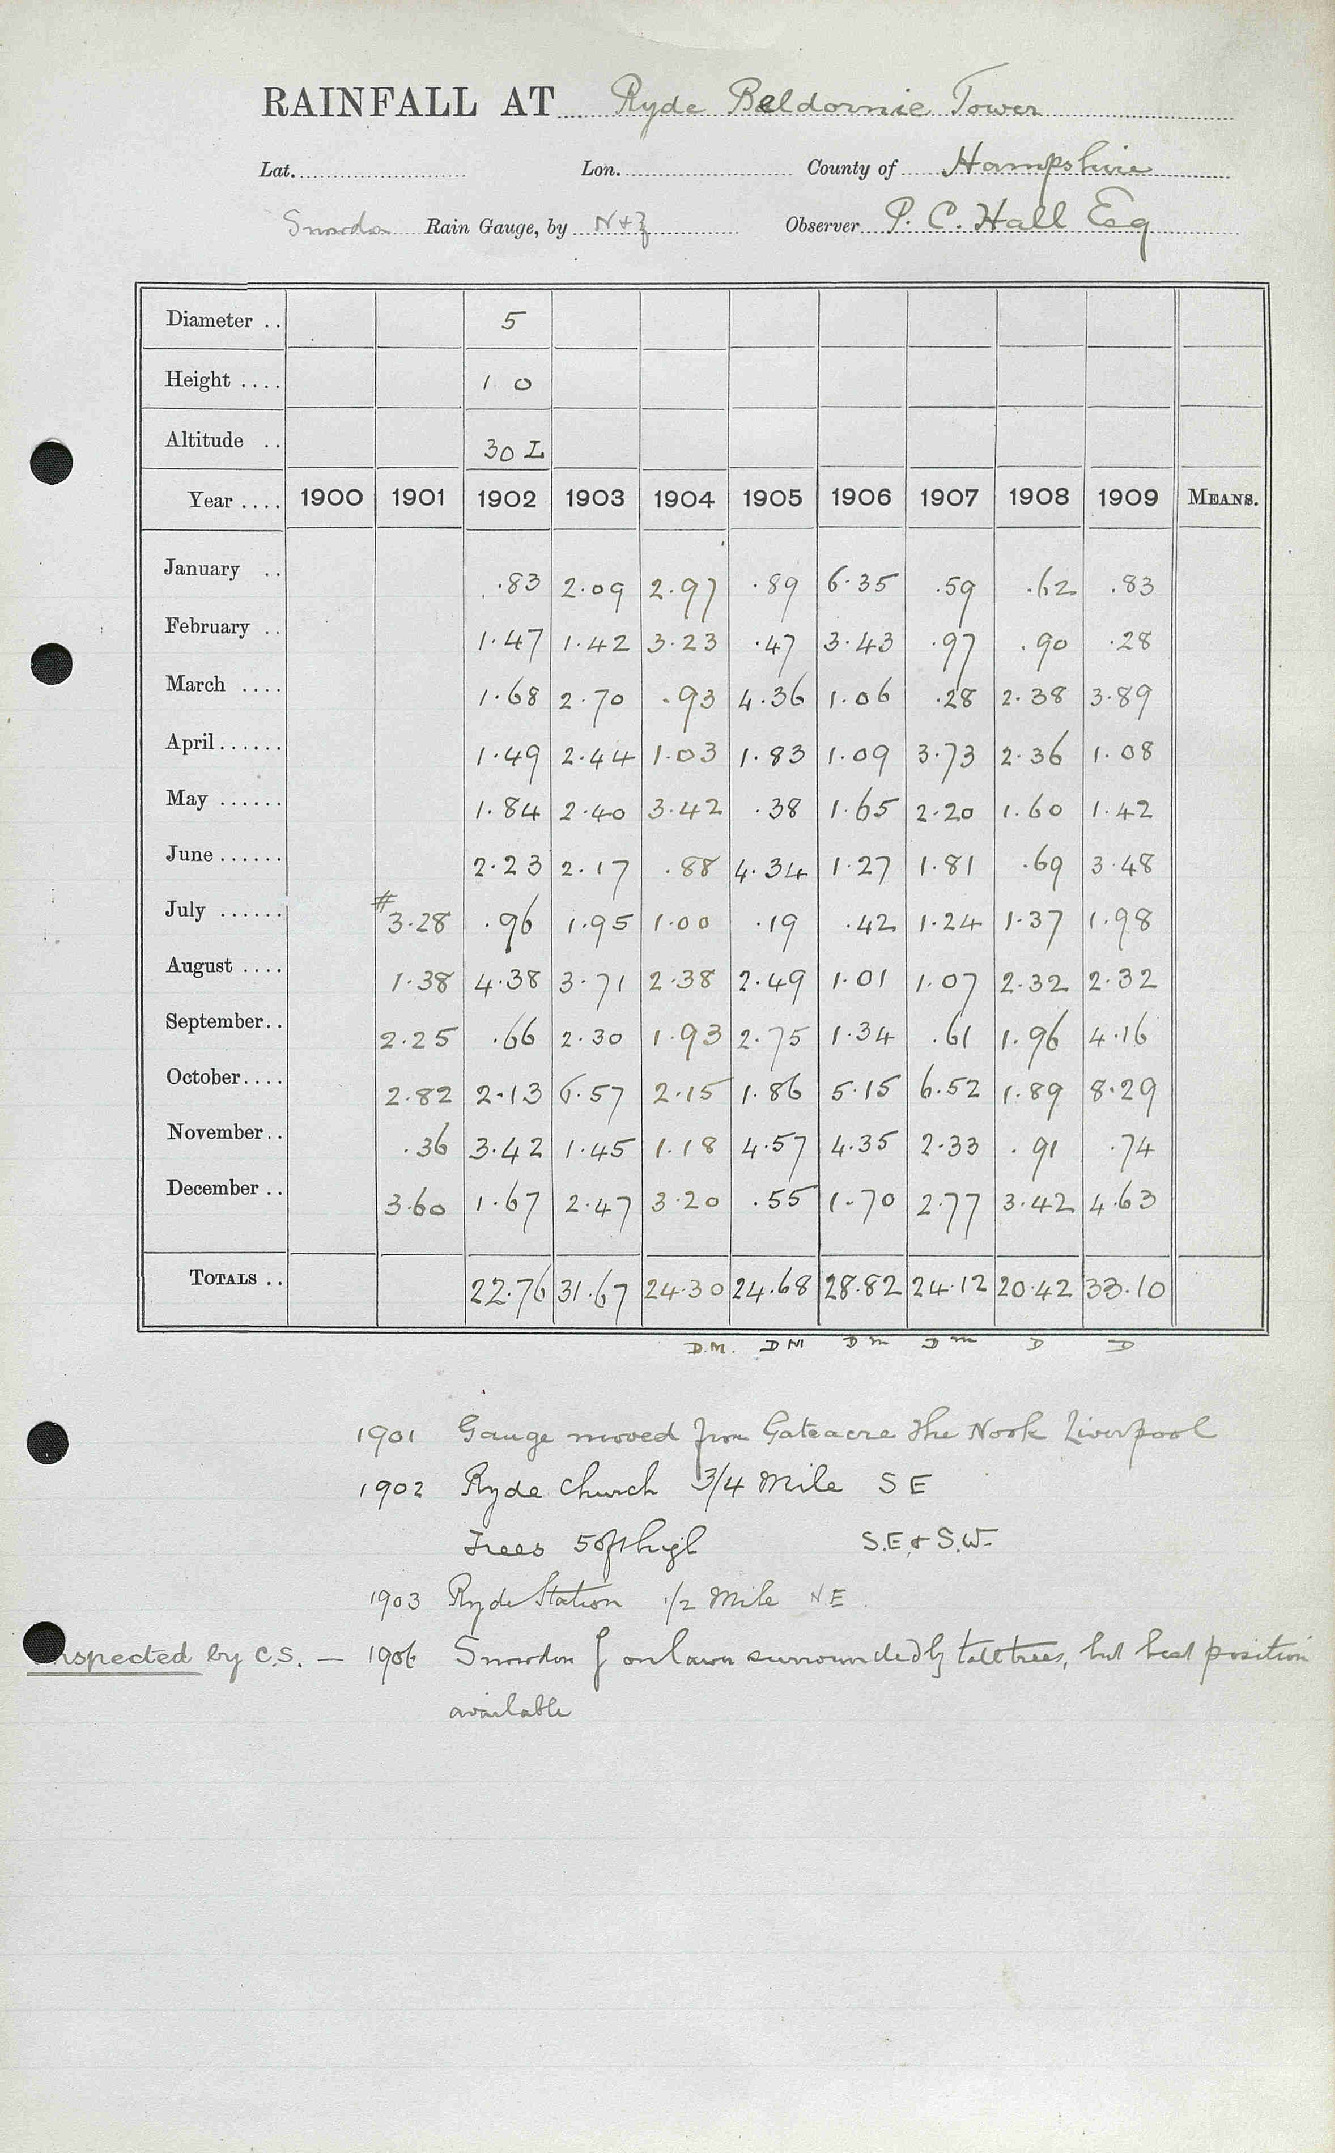 RAINFALL AT Ryde Beldornie Tower
Lat. Lon. County of Hampshire
Snowdon Rain Gauge, by N+Z Observer P. C. Hall Esq
Diameter .. 5
Height .... 1 0
Altitude .. 30 L
Year .... 1900 1901 1902 1903 1904 1905 1906 1907 1908 1909 MEANS.
January .. .83 2.09 2.97 .89 6.35 .59 .62 .83
February .. 1.47 1.42 3.23 .47 3.43 .97 .90 .28
March .... 1.68 2.70 .93 4.36 1.06 .28 2.38 3.89
April ...... 1.49 2.44 1.03 1.83 1.09 3.73 2.36 1.08
May ...... 1.84 2.40 3.42 .38 1.65 2.20 1.60 1.42
June ...... 2.23 2.17 .88 4.34 1.27 1.81 .69 3.48
July ...... # 3.28 .96 1.95 1.00 .19 .42 1.24 1.37 1.98
August .... 1.38 4.38 3.71 2.38 2.49 1.01 1.07 2.32 2.32
September.. 2.25 .66 2.30 1.93 2.75 1.34 .61 1.96 4.16
October.... 2.82 2.13 6.57 2.15 1.86 5.15 6.52 1.89 8.29
November.. .36 3.42 1.45 1.18 4.57 4.35 2.33 .91 .74
December .. 3.60 1.67 2.47 3.20 .55 1.70 2.77 3.42 4.63
TOTALS .. 22.76 31.67 24.30 24.68 28.82 24.12 20.42 33.10
D.M. D M D m D m D D
1901 Gauge moved from Gateacre The Nook Liverpool
1902 Ryde Church 3/4 Mile S E
Trees 50ft high S.E. & S.W.
1903 Ryde Station 1/2 Mile N E
Inspected by C.S. — 1906 Snowdon on lawn surrounded by tall trees, but best position
available